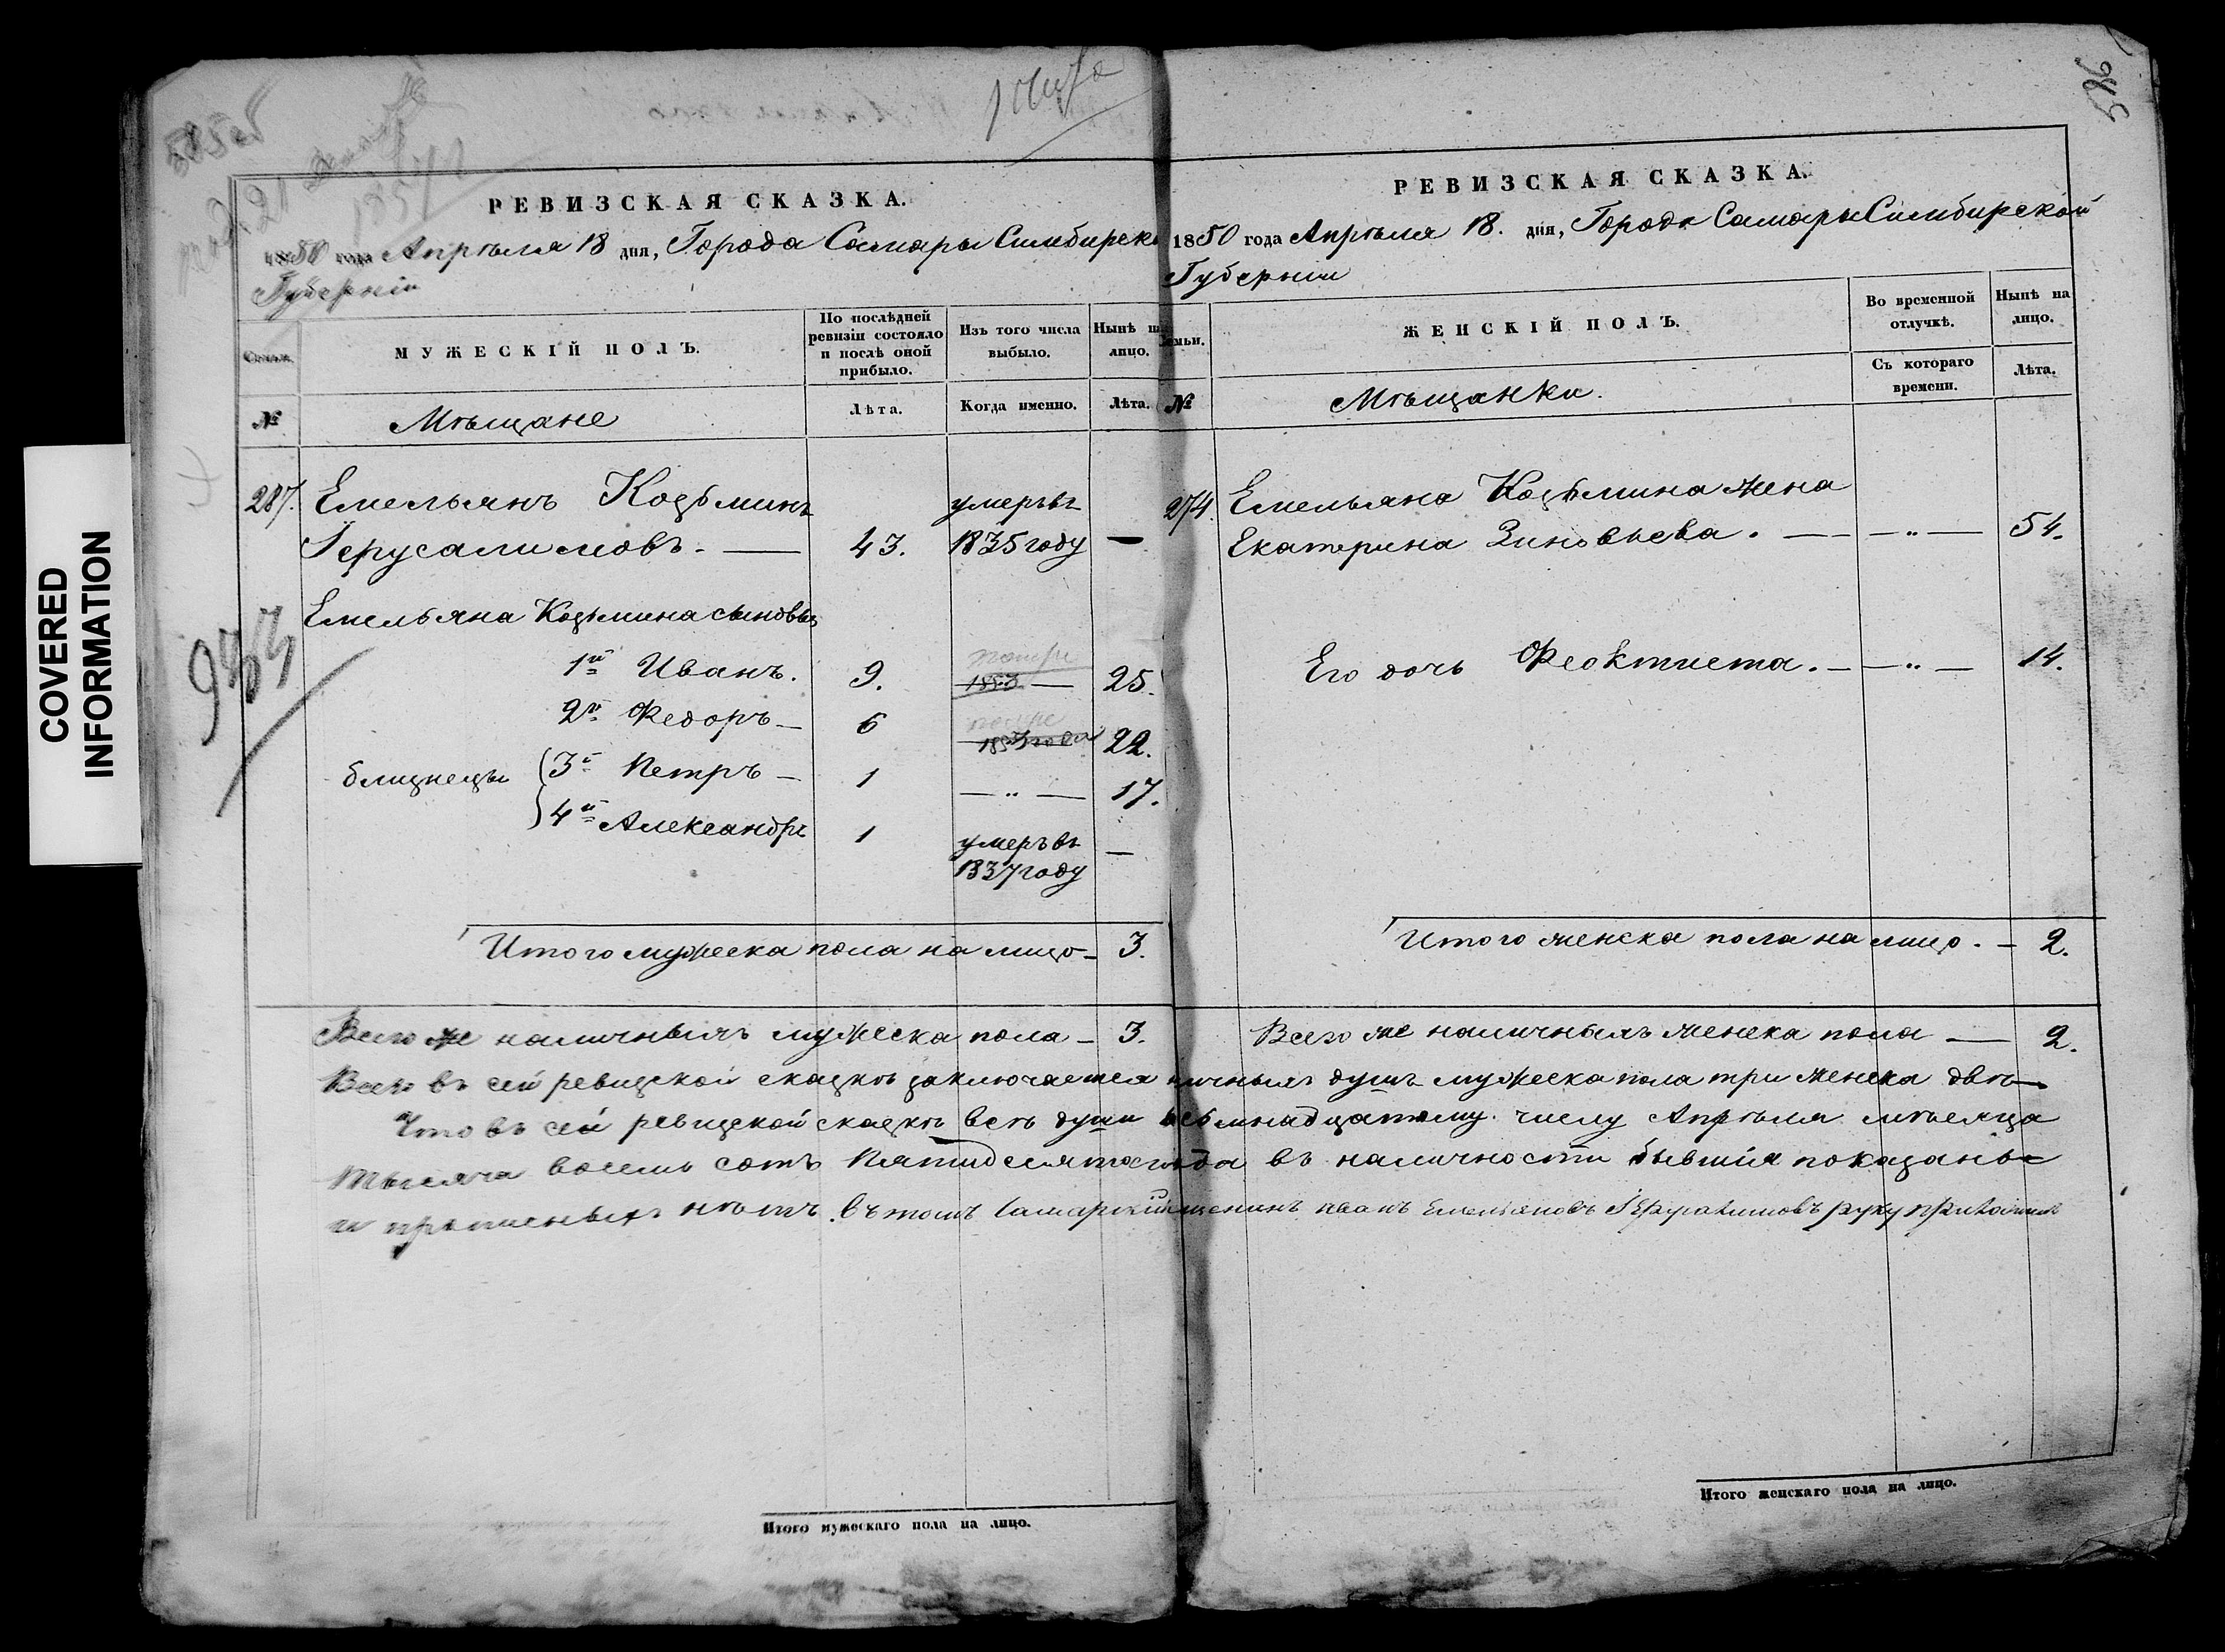 COVERED
INFORMATION
585об
985
РЕВИЗСКАЯ СКАЗКА.
1850 года Апрѣля 18 дня, Города Самары Симбирско
Губерніи
Семьи.
МУЖЕСКІЙ ПОЛЪ.
По послѣдней ревизіи состояло и послѣ оной прибыло.
Изъ того числа выбыло.
Нынѣ на лицо.
№
Мѣщане
Лѣта.
Когда именно.
Лѣта.
287. Емельянъ Козьминъ умеръ въ
Іерусалимовъ. — 43. 1835 году —
Емельяна Козьмина сыновья
1й Иванъ. 9. 1853 — 25.
2й Федоръ — 6 1853 года 22.
близнецы 3й Петръ — 1 — „ — 17.
4й Александръ 1 умеръ въ —
1837 году
Итого мужеска пола на лицо — 3.
Всего же наличныхъ мужеска пола — 3.
РЕВИЗСКАЯ СКАЗКА.
1850 года Апрѣля 18. дня, Города Самары Симбирской
Губерніи
Семьи.
ЖЕНСКІЙ ПОЛЪ.
Во временной отлучкѣ.
Нынѣ на лицо.
№
Мѣщанки.
Съ котораго времени.
Лѣта.
274. Емельяна Козьмина жена
Екатерина Зиновьева. — — „ — 54.
Его дочь Феоктиста. — — „ — 14.
Итого женска пола на лицо. — 2.
Всего же наличныхъ женска пола — 2.
Всего въ сей ревизской сказкѣ заключается наличныхъ душъ мужеска пола три женска двѣ —
Что въ сей ревизской сказкѣ всѣ души восьмнадцатому числу Апрѣля мѣсяца
тысяча восемь сотъ Пятидесятаго года въ наличности бывшія показаны
и прописныхъ нѣтъ. въ томъ Самарскій мещенинъ иванъ Емельяновъ Іерусалимовъ руку приложилъ
Итого мужескаго пола на лицо.
Итого женскаго пола на лицо.